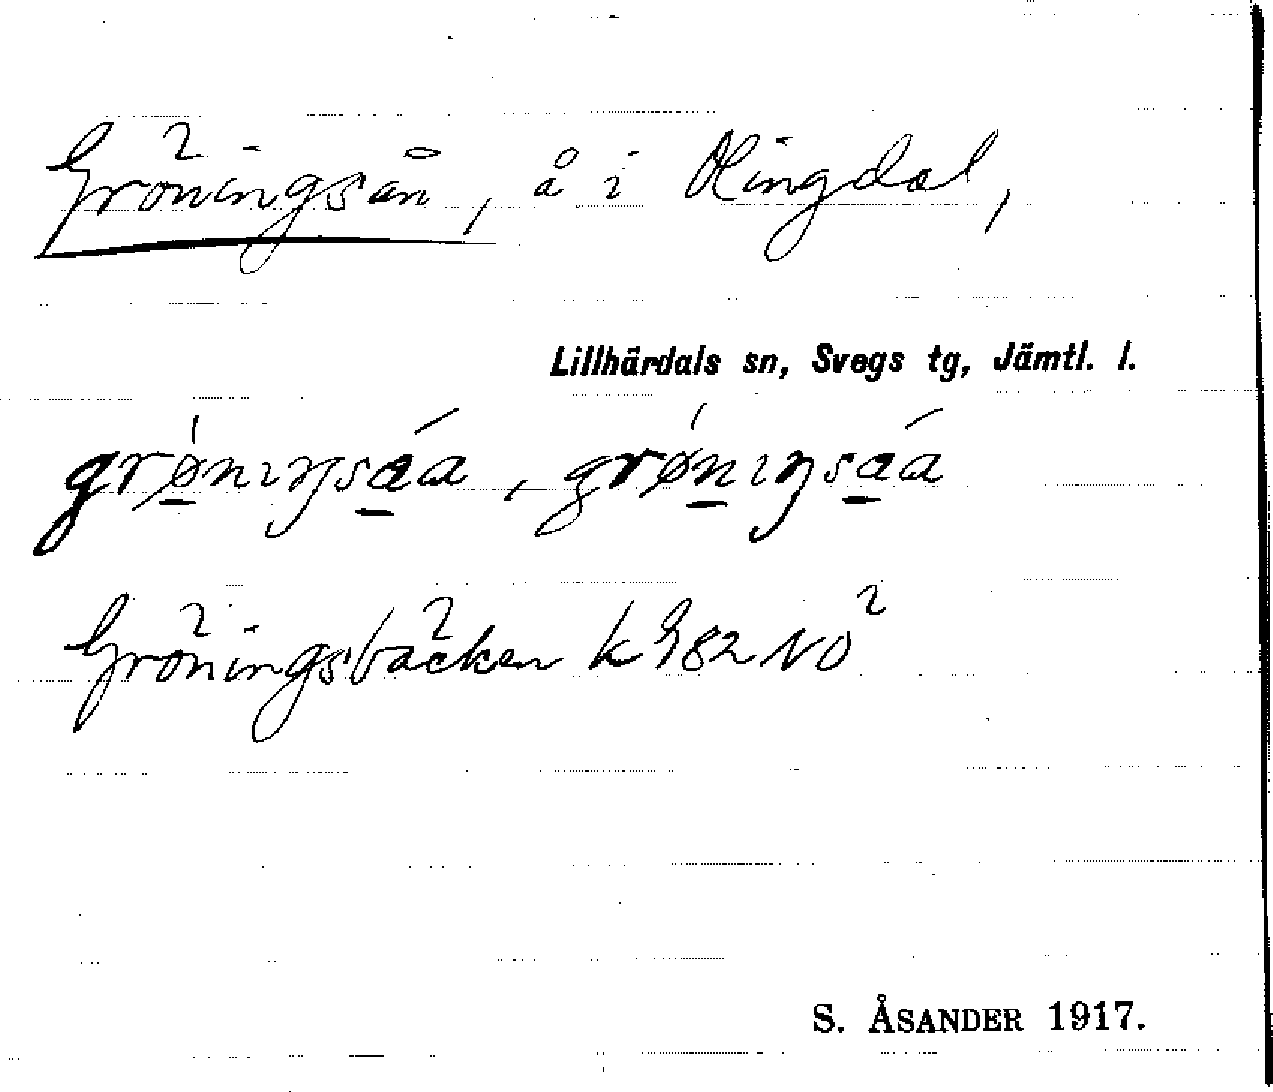 Gröningsån, å i Olingdal,
Lillhärdals sn, Svegs tg, Jämtl. l.
grø̱nıŋsa̱a, grøṉıŋsa̱a
Gröningsbäcken k 982 NO²
S. ÅSANDER 1917.